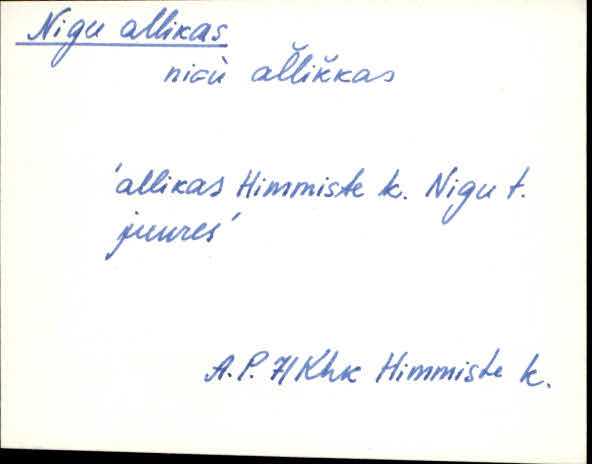 Nigu allikas
niɢù al̆lik̆kas
'allikas Himmiste k. Nigu t.
juures'
A.P. 71 Khk Himmiste k.